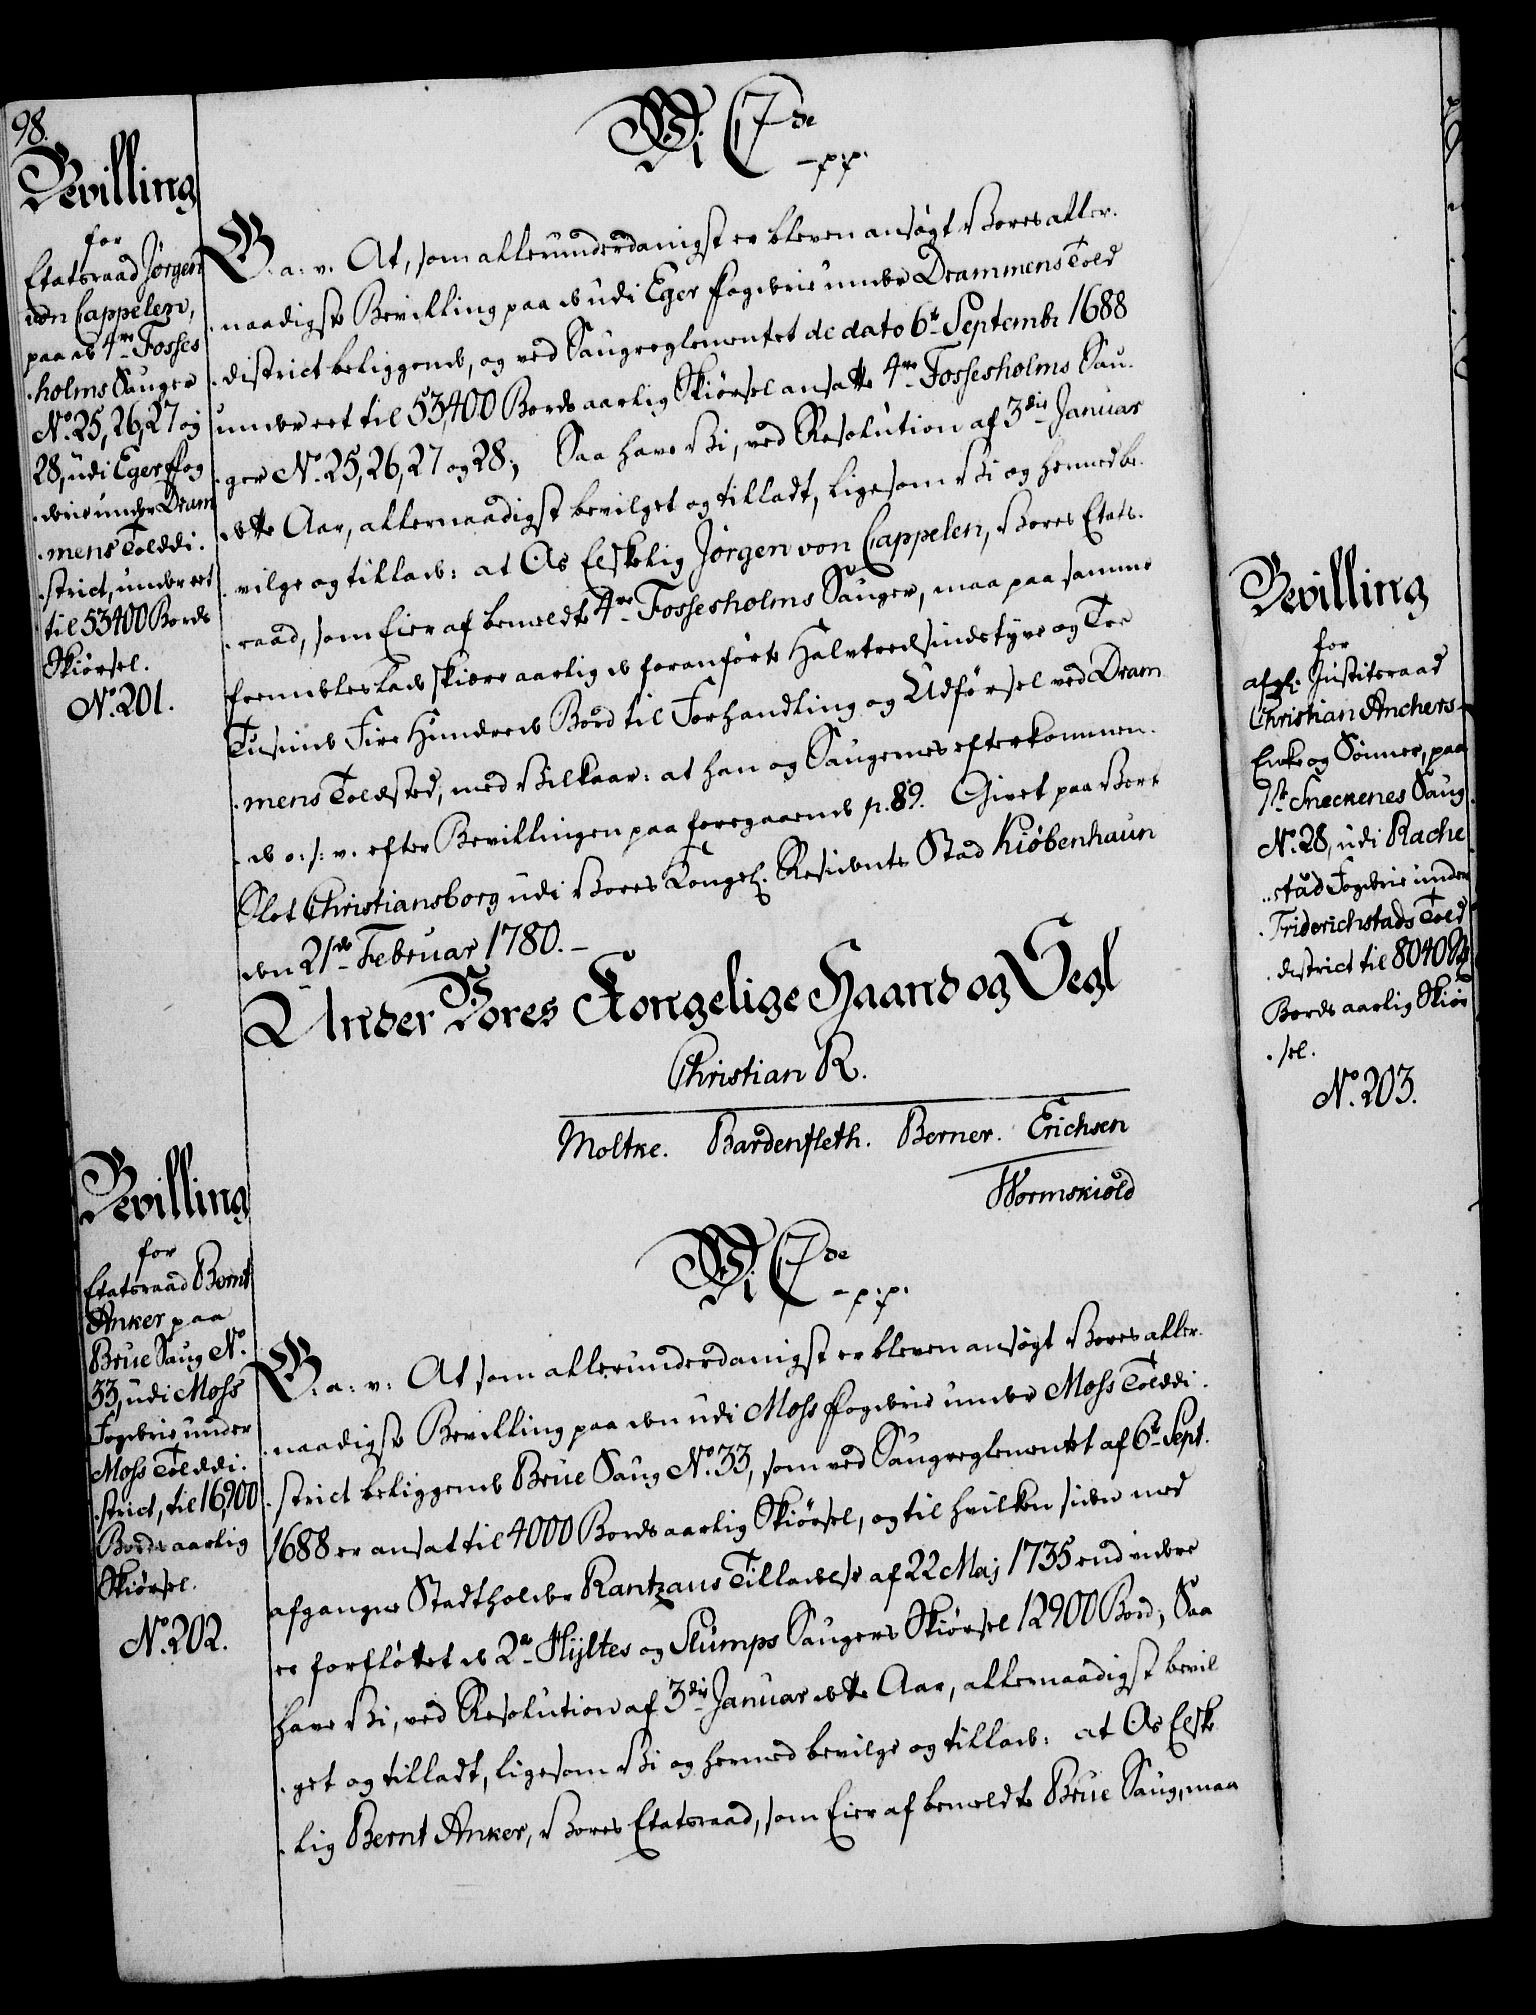 98.
Bevilling
for
Etatsraad Jørgen
von Cappelen,
paa de 4re Fosses
holms Sauger
No. 25, 26, 27 og
28, udi Eger Fog
derie under Dram
mens Tolddi.
strict, underret
til 53400 Bords
Skiørsel.
No. 201.
Vi C 7de
-p:p:
G. a: v. At, som allerunderdanigst er bleven ansøgt Vores aller.
naadigste Bevilling paa de udi Eger Fogderie under Drammens Told
district beliggende, og ved Saugreglementet de dato 6te Septembr 1688
underret til 53,400 Bords aarlig Skiørsel ansatte 4re Fossesholms Sau.
ger No. 25, 26, 27 og 28; Saa have Vi, ved Resolution af 3die Januar
dette Aar, allernaadigst bevilget og tilladt, ligesom Vi og hermed be.
vilge og tillade: at Os Elskelig Jørgen von Cappelen, Vores Etats.
raad, som Eier af bemeldte 4re Fossesholms Sauger, maa paa samme
fremdeles lade skiære aarlig de foranførte Halvtredsindstyve og Tre
Tusinde Fire Hundrede Bord til Forhandling og Udførsel ved Dram
mens Toldsted, med Vilkaar: at han og Saugernes efterkommen.
de o: s: v. efter Bevillingen paa foregaaende p. 89. Givet paa Vort
Slot Christiansborg udi Vores Kongel. Residents Stad Kiøbenhaun
den 21de Februar 1780. –
Under Vores Kongelige Haand og Segl
Christian R.
Moltke. Bardenfleth. Berner. Erichsen
Wormskiold
Bevilling
for
Etatsraad Bernt
Anker paa
Brue Saug No.
33, udi Moss
Fogderie under
Moss Tolddi.
strict, til 16,900
Bords aarlig
Skiørsel.
No. 202.
Vi C 7de
-p:p:
G. a: v: At som allerunderdanigst er bleven ansøgt Vores aller.
naadigste Bevilling paa den udi Moss Fogderie under Moss Toldi.
strict beliggende Brue Saug No. 33, som ved Saugreglementet af 6te Sept.
1688 er ansat til 4000 Bords aarlig Skiørsel, og til hvilken siden med
afgangne Stadtholder Rantzaus Tilladelse af 22 Maj 1735 end videre
er forfløttet de 2de Hyltes og Slumps Saugers Skiørsel 12900 Bord; Saa
have Vi, ved Resolution af 3die Januar dette Aar, allernaadigst bevil
get og tilladt, ligesom Vi og hermed bevilge og tillade: at Os Elske
lig Bernt Anker, Vores Etatsraad, som Eier af bemeldte Brue Saug, maa
Bevilling
for
afg: Justitsraad
Christian Anchers
Enke og Sønner, paa
Sneckenes Saug
No. 28, udi Rache
stad Fogderie under
Friderichstads Told
district til 8040
Bords aarlig Skiør
sel.
No. 203.